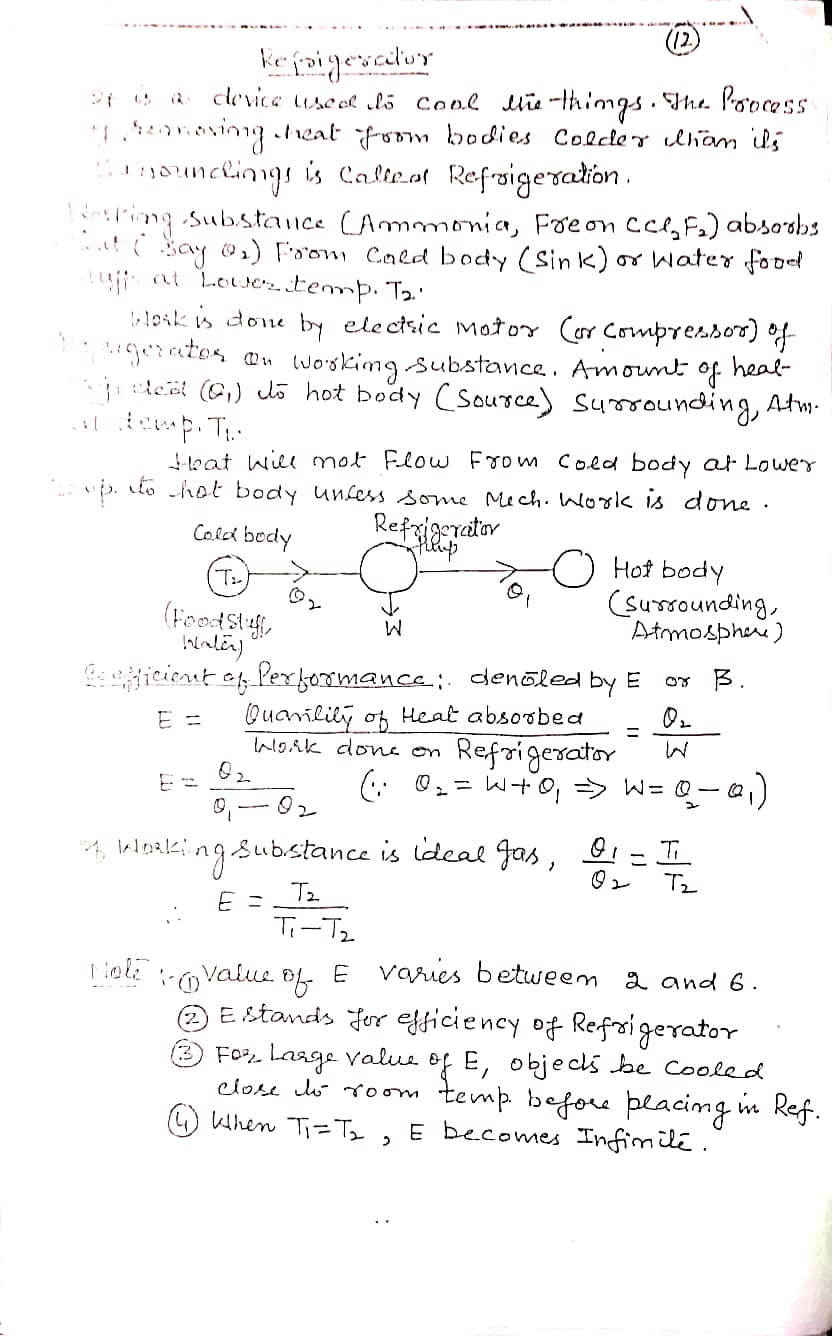 (12)
Refrigerator
It is a device used to cool the things. The Process
of removing heat from bodies Colder than its
surroundings is Called Refrigeration.
Working substance (Ammonia, Freon CCl₂F₂) absorbs
heat (say Q₂) From Cold body (Sink) or Water food
stuff at Lower temp. T₂.
Work is done by electric Motor (or Compressor) of
Refrigerator on Working substance. Amount of heat
rejected (Q₁) to hot body (Source) Surrounding, Atm.
at temp. T₁.
Heat Will not Flow From Cold body at Lower
temp. to hot body unless some Mech. Work is done.
Cold body Refrigerator
T₂ Q₂ W Q₁ Hot body
(Food stuff, (surrounding,
Water) Atmosphere)
Coefficient of Performance:. denoted by E or β.
E = Quantity of Heat absorbed / Work done on Refrigerator = Q₂ / W
E = Q₂ / Q₁ - Q₂ (∵ Q₂ = W + Q₁ ⇒ W = Q₂ - Q₁)
If Working Substance is ideal gas, Q₁ / Q₂ = T₁ / T₂
∴ E = T₂ / T₁ - T₂
Note :- ① Value of E varies between 2 and 6.
② E stands for efficiency of Refrigerator
③ For Large value of E, objects be Cooled
close to room temp. before placing in Ref.
④ When T₁ = T₂, E becomes Infinite.